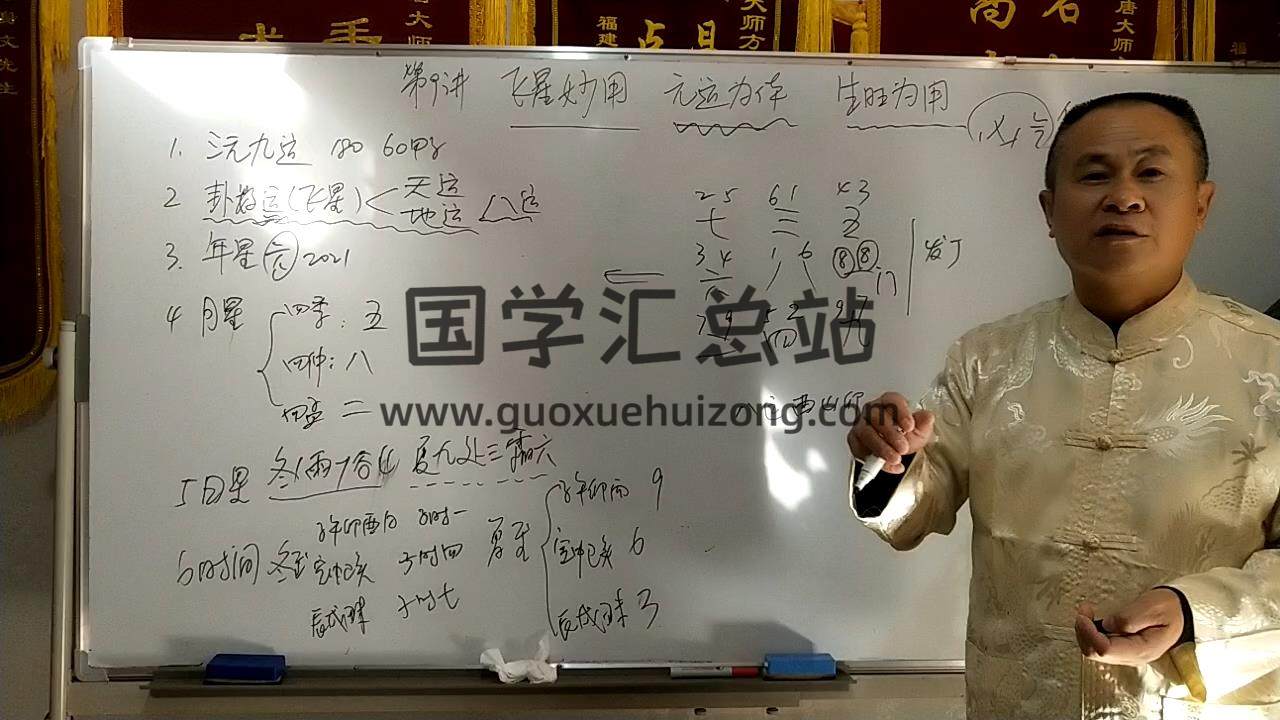 大师
福建
大师方
唐大师
福
第9讲 飞星妙用 元运为体 生旺为用
1. 三元九运 180 60甲子
2 卦数运(飞星) 天运
地运 八运
3. 年星 六 2021
4 月星 四季: 五
四仲: 八
四孟 二
25 61 43
七 三 五
34 16 88
六
79 52 97
二 四 九
发丁
国学汇总站
www.guoxuehuizong.com
5 日星 冬1雨7谷4 夏九处三霜六
6时间 冬至 子午卯酉日 子时一
寅申巳亥 子时四
辰戌丑未 子时七
夏至 子午卯酉 9
寅申巳亥 6
辰戌丑未 3